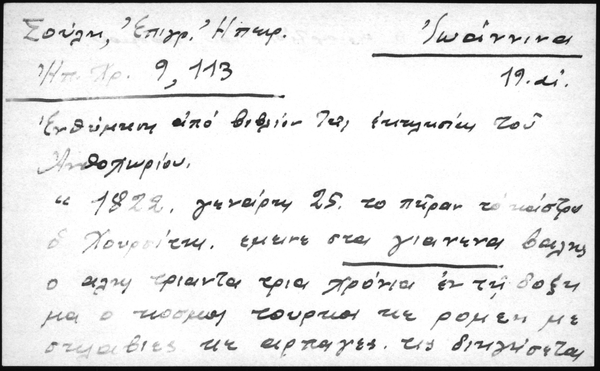 Σούλη, Ἐπιγρ. Ἠπειρ.
Ἰωάννινα
Ἠπ. Χρ. 9, 113
19. αἰ.
Ἐνθύμηση ἀπό βιβλίον τῆς ἐκκλησίας τοῦ
Ἀνθοχωρίου.
“ 1822. γενάρη 25. το πῆραν το κάστρο
ὁ Χουρσίτης. εμινε στα γιανενα βαλης
ο αλη τριαντα τρια χρόνια ἐν τῇ δοξη
μα ο κοσμος τουρκοι κε ρομεη με
σκλαβιες κε αρπαγες. τις διηγήσεται